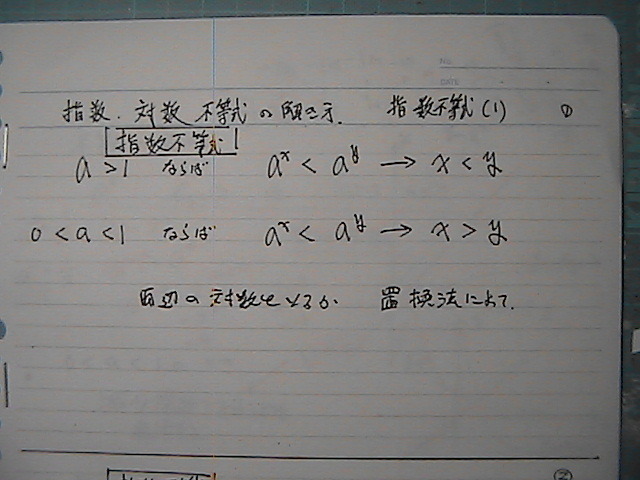 指数・対数 不等式の解き方. 指数不等式(1) ①
指数不等式
a > 1 ならば a^x < a^y → x < y
0 < a < 1 ならば a^x < a^y → x > y
両辺の対数をとるか 置換法によって.
②